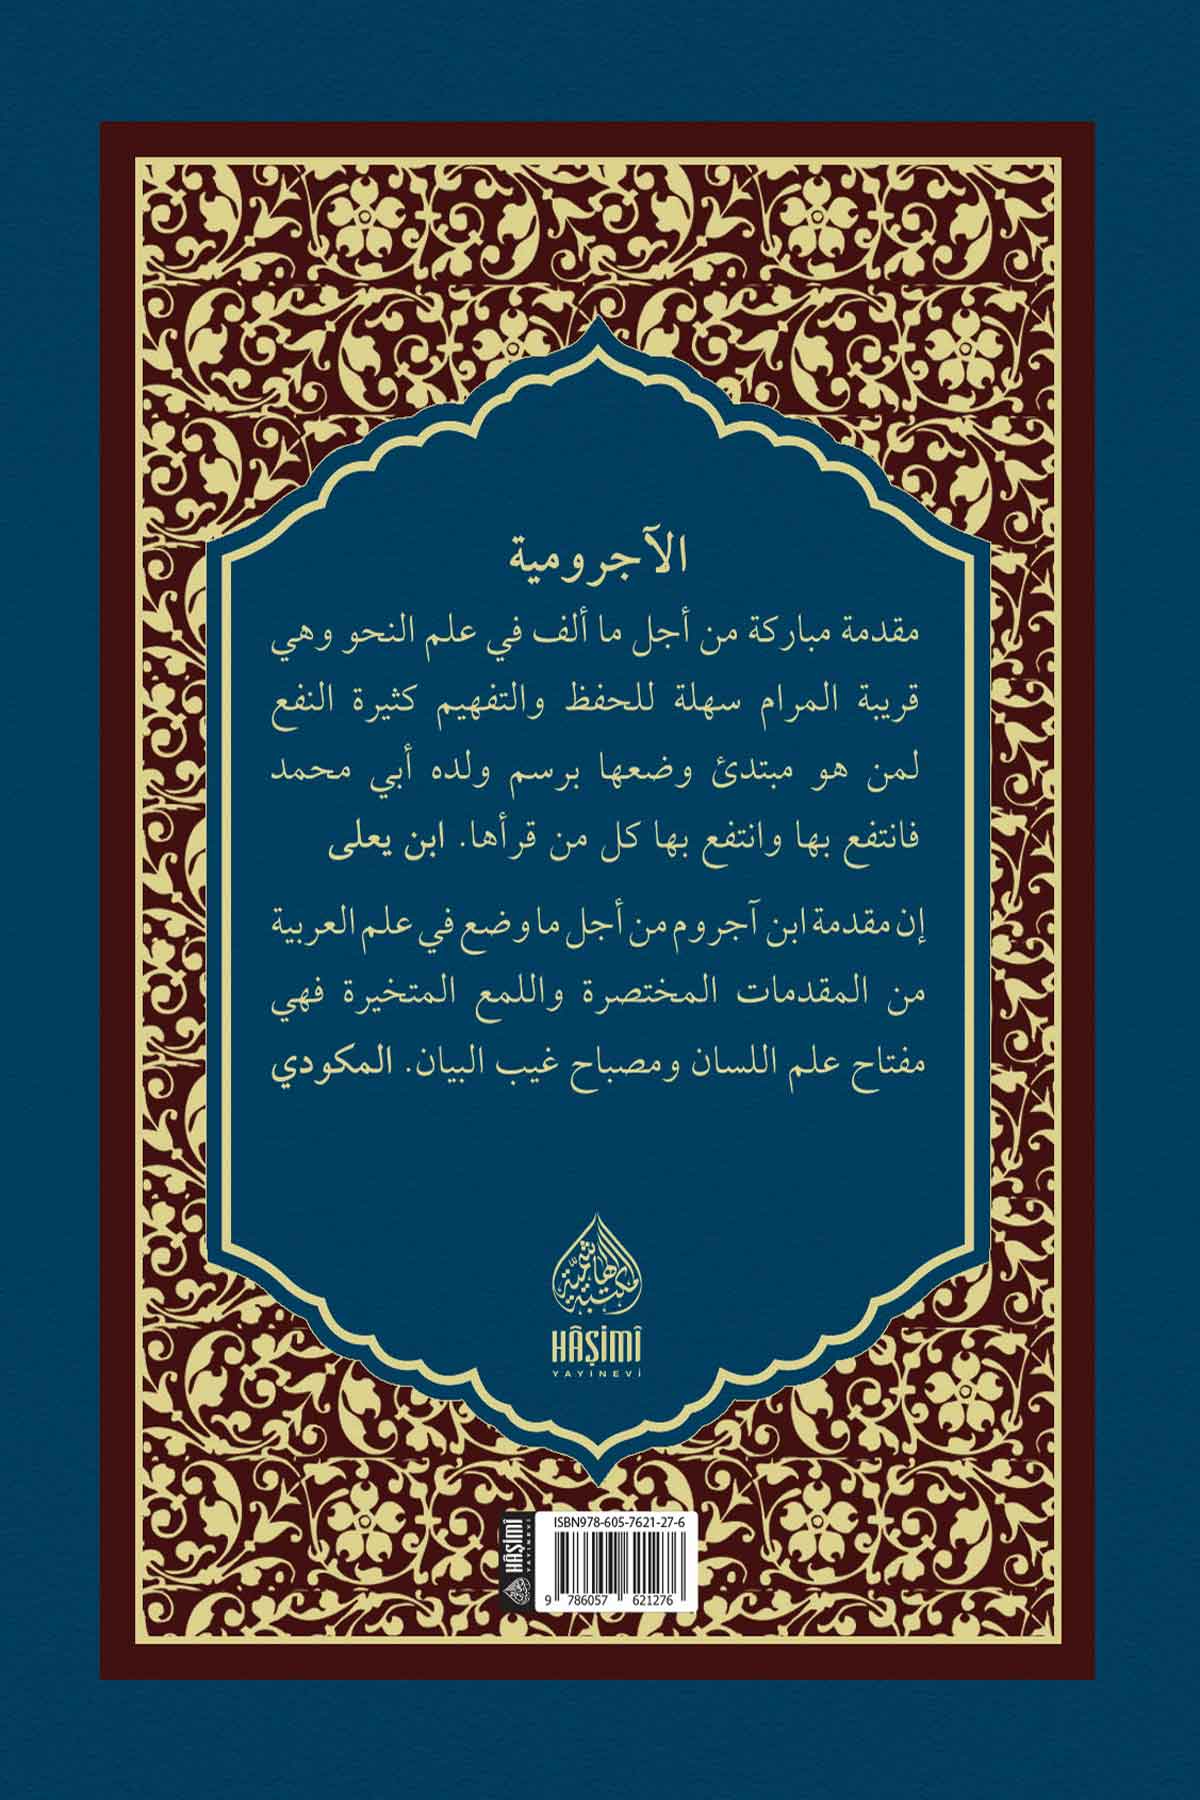 الآجرومية
مقدمة مباركة من أجل ما ألف في علم النحو وهي
قريبة المرام سهلة للحفظ والتفهيم كثيرة النفع
لمن هو مبتدئ وضعها برسم ولده أبي محمد
فانتفع بها وانتفع بها كل من قرأها. ابن يعلى
إن مقدمة ابن آجروم من أجل ما وضع في علم العربية
من المقدمات المختصرة واللمع المتخيرة فهي
مفتاح علم اللسان ومصباح غيب البيان. المكودي
مكتبة الهاشمية
HÂŞİMÎ
YAYINEVİ
HÂŞİMÎ
YAYINEVİ
ISBN978-605-7621-27-6
9 786057 621276